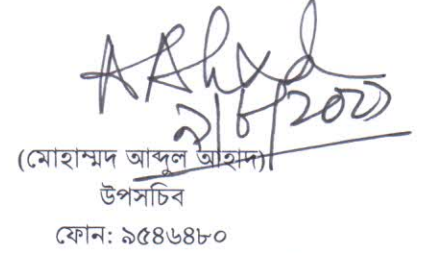 (মোহাম্মদ আব্দুল আহাদ)
উপসচিব
ফোন: ৯৫৪৬৪৮০